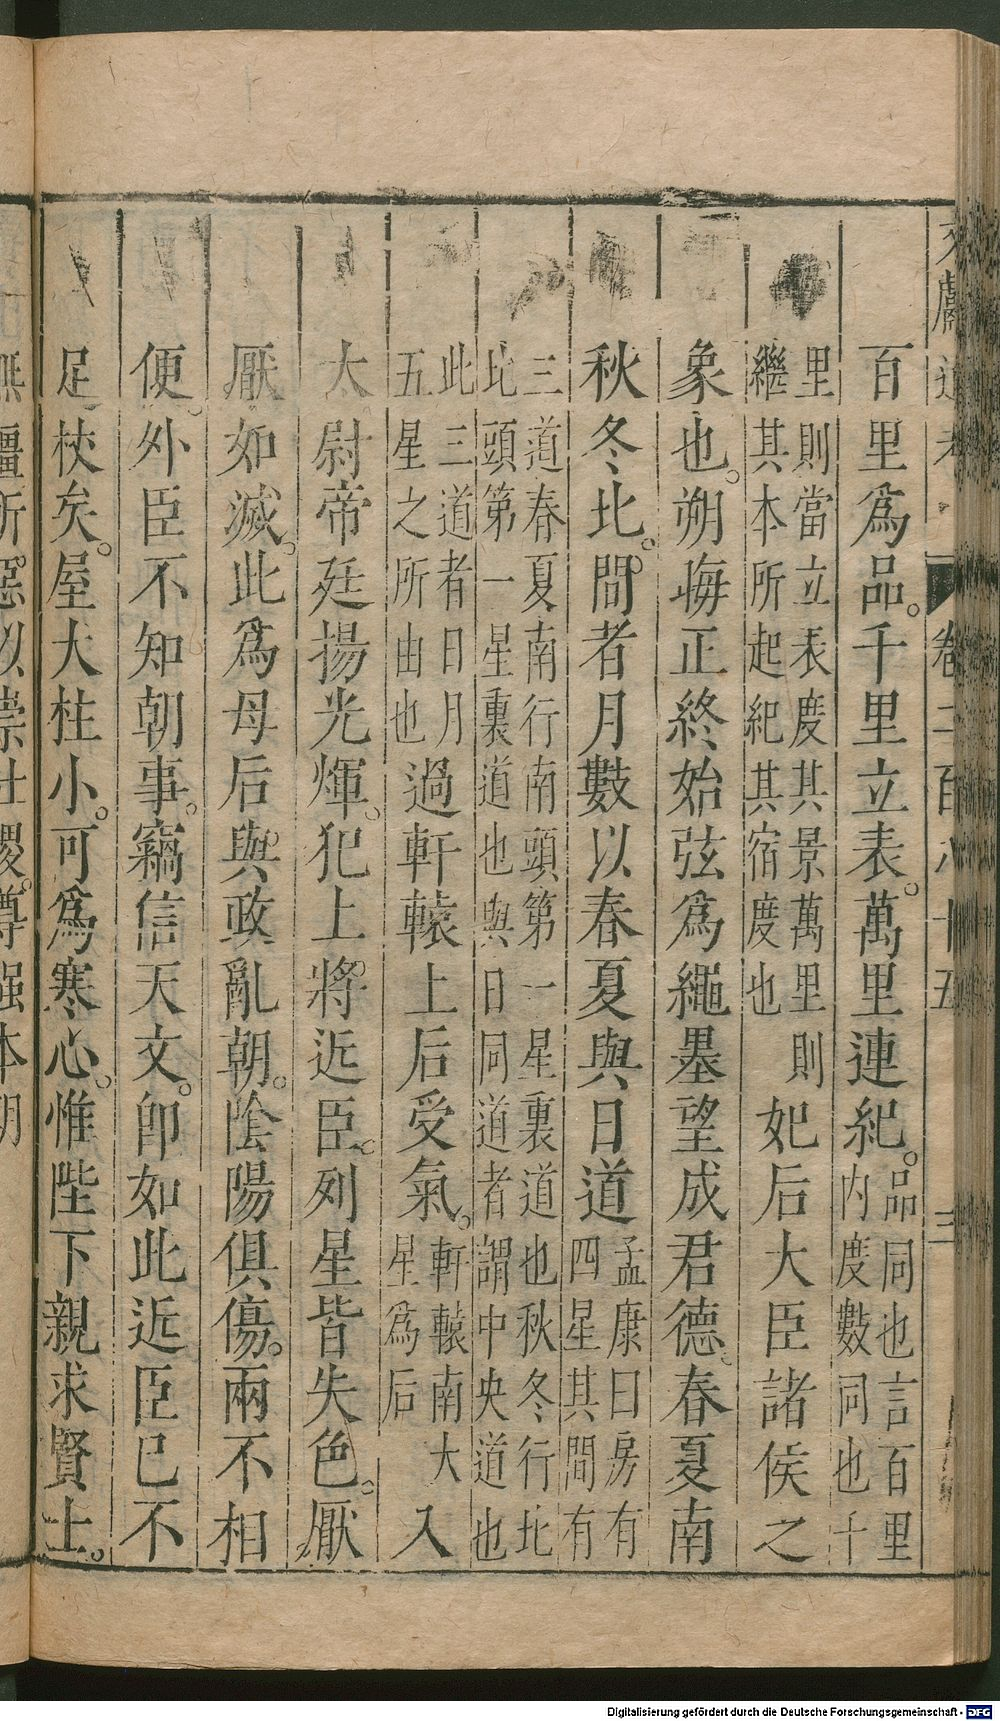 文獻通考 卷二百八十五 三
百里爲品。千里立表。萬里連紀。品同也言百里内度數同也十
里則當立表度其景萬里則繼其本所起紀其宿度也 妃后大臣諸侯之
象也。朔晦正終始弦爲繩墨望成君德春夏南
秋冬北。間者月數以春夏與日道孟康曰房有四星其間有
三道春夏南行南頭第一星裏道也秋冬行北北頭第一星裏道也與日同道者謂中央道也
此三道者日月五星之所由也 過軒轅上后受氣。軒轅南大星爲后 入
太尉帝廷揚光煇。犯上將近臣。列星皆失色。厭
厭如滅。此爲母后與政亂朝。陰陽俱傷。兩不相
便。外臣不知朝事。竊信天文。卽如此近臣已不
足杖矣。屋大柱小。可爲寒心。惟陛下親求賢士。
無彊所惡以崇社稷。尊强本朝
Digitalisierung gefördert durch die Deutsche Forschungsgemeinschaft - DFG